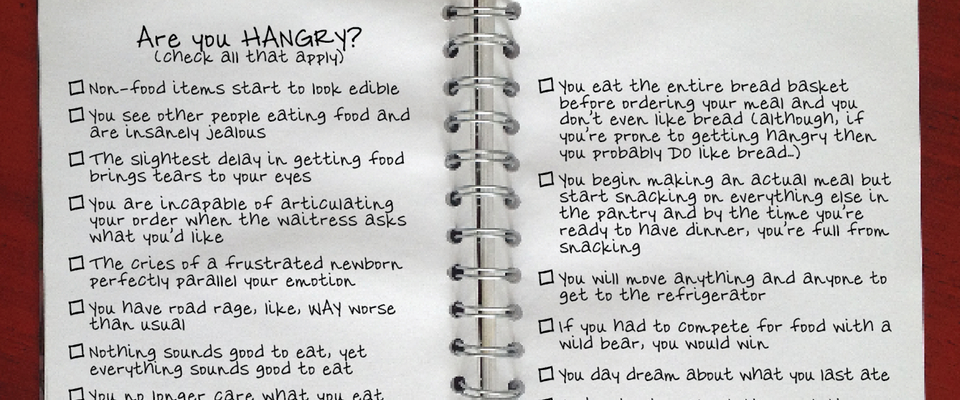 Are you HANGRY?
(check all that apply)
Non-food items start to look edible
You see other people eating food and
are insanely jealous
The slightest delay in getting food
brings tears to your eyes
You are incapable of articulating
your order when the waitress asks
what you'd like
The cries of a frustrated newborn
perfectly parallel your emotion
You have road rage, like, WAY worse
than usual
Nothing sounds good to eat, yet
everything sounds good to eat
You no longer care what you eat
You eat the entire bread basket
before ordering your meal and you
don't even like bread (although, if
you're prone to getting hangry then
you probably DO like bread...)
You begin making an actual meal but
start snacking on everything else in
the pantry and by the time you're
ready to have dinner, you're full from
snacking
You will move anything and anyone to
get to the refrigerator
If you had to compete for food with a
wild bear, you would win
You day dream about what you last ate